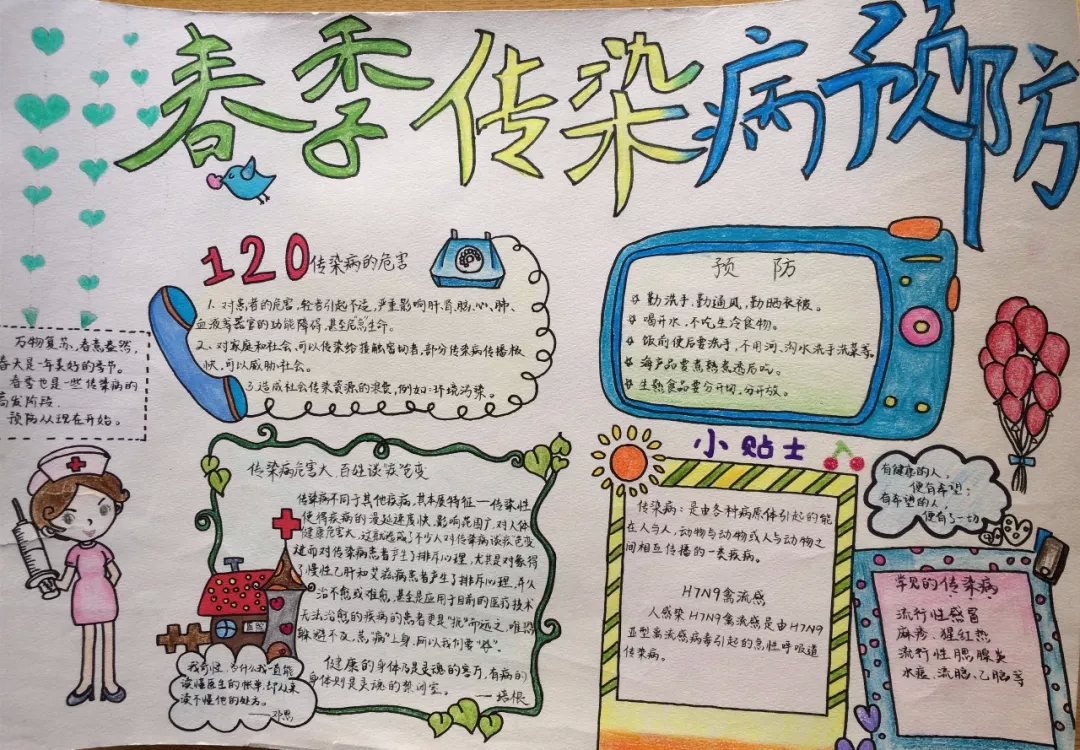 春季传染病预防
120传染病的危害
1.对患者的危害,轻者引起不适,严重影响肝、肾、脑、心、肺、
血液等器官的功能障碍,甚至危害生命。
2.对家庭和社会,可以传染给接触害的者,部分传染病传播极
快,可以威胁社会。
3.造成社会传染资源的浪费,例如:环境污染。
预 防
勤洗手,勤通风,勤晒衣被。
喝开水,不吃生冷食物。
饭前便后要洗手,不用河、沟水洗手洗菜等。
海产品要煮熟煮透后吃。
生熟食品要分开切,分开放。
万物复苏、春意盎然,
春天是一年美好的季节。
春季也是一些传染病的
高发阶段。
预防从现在开始。
传染病危害大、百姓谈疫色变
传染病不同于其他疾病,其本质特征—传染性
使得疾病的漫延速度快、影响范围广,对人体
健康危害大,这就造成了不少人对传染病谈疫色变
进而对传染病患者产生了排斥心理,尤其是对象得
了慢性乙肝和艾滋病患者产生了排斥心理,
治不愈或难愈,甚至是应用于目前的医疗技术
无法治愈的疾病的患者更是"抗"而远之,唯恐
躲避不及,恙"病"上身,所以我们要
健康的身体乃是灵魂的客厅,有病的
身体则是灵魂的禁闭室。
——培根
我奇怪,为什么我一直能
读懂医生的帐单,却从来
读不懂他的处方。
小贴士
传染病:是由各种病原体引起的能
在人与人、动物与动物或人与动物之
间相互传播的一类疾病。
H7N9禽流感
人感染H7N9禽流感是由H7N9
亚型禽流感病毒引起的急性呼吸道
传染病。
有健康的人,
便有希望;
有希望的人,
便有了一切
常见的传染病
流行性感冒
麻疹、猩红热
流行性腮腺炎
水痘、流脑、乙脑等